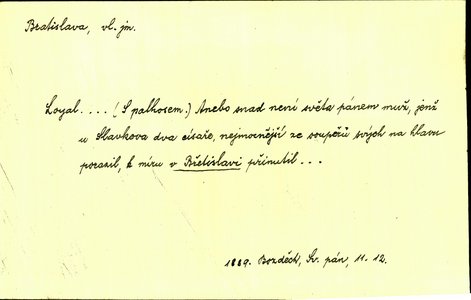 Bratislava, vl. jm.
Loyal.... (S pathosem.) Anebo snad není světa pánem muž, jenž
u Slavkova dva císaře, nejmocnější ze soupeřů svých na hlavu
porazil, k míru v Břetislavi přinutil...
1889. Bozděch, Sv. pán, 11-12.